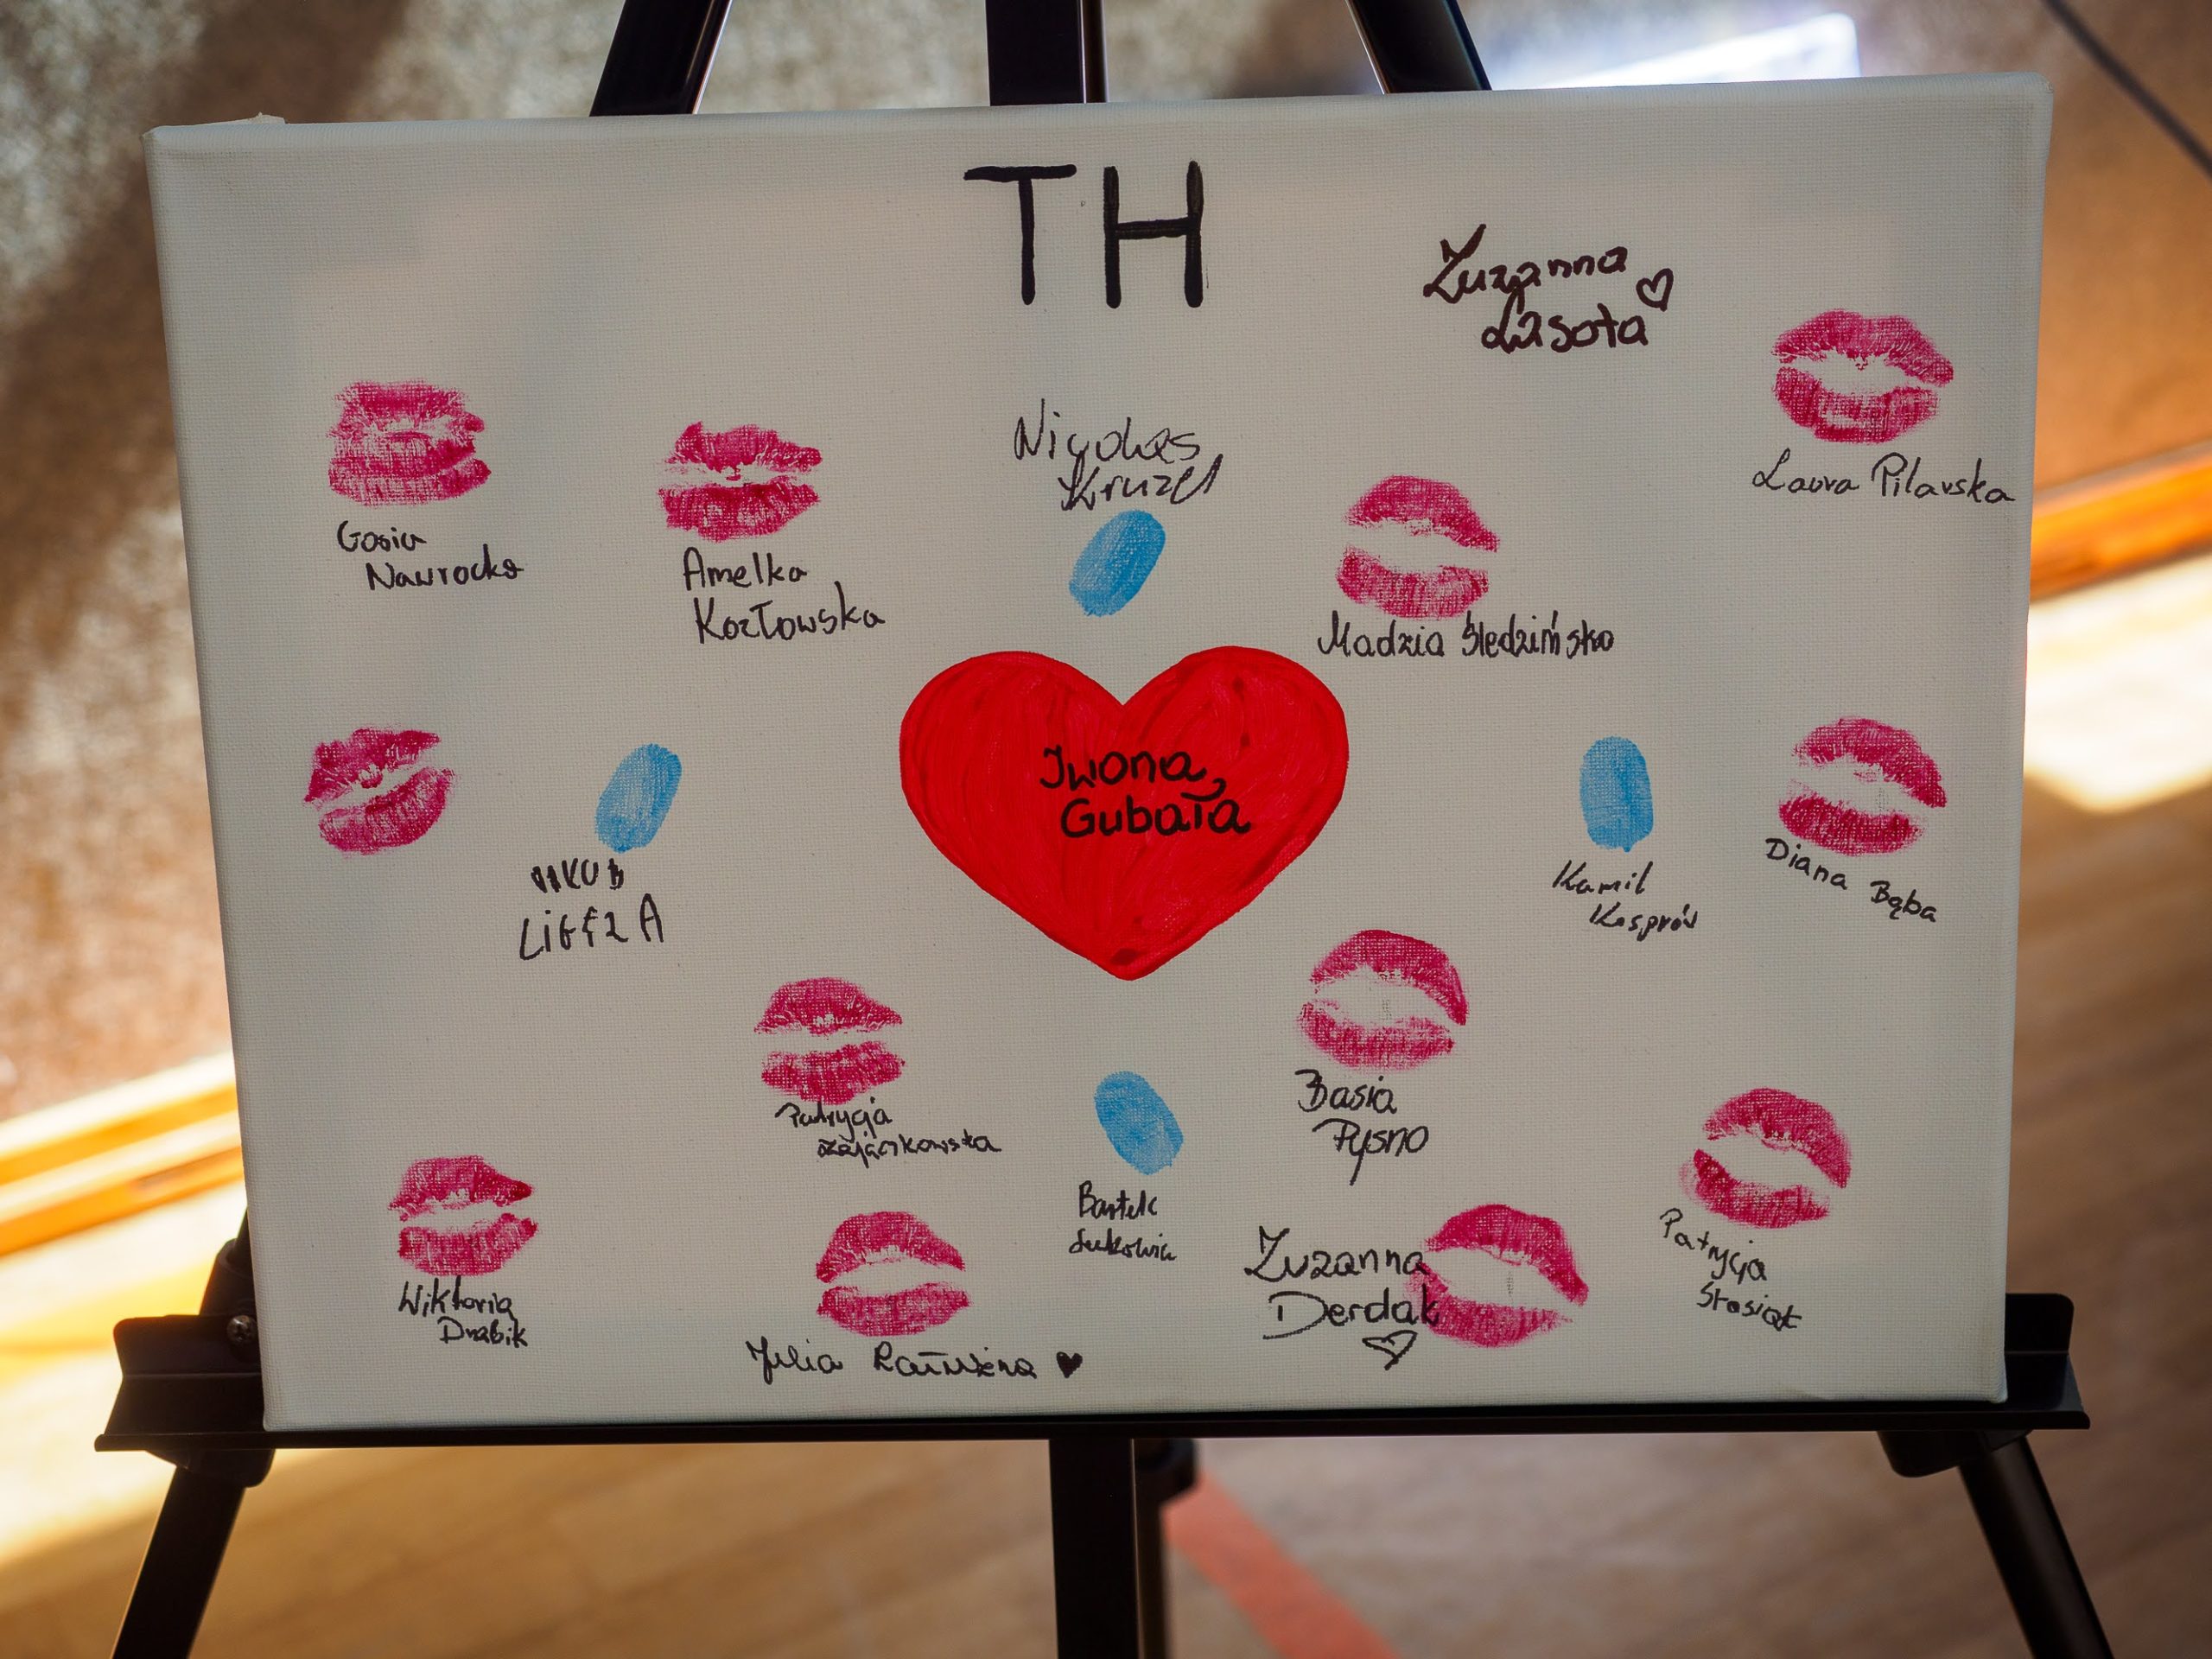 TH
Zuzanna
Lasota
Nicolas
Kruzel
Laura Pilarska
Gosia
Nawrocka
Amelka
Kozłowska
Madzia Śledzińska
Iwona
Gubała
LIGĘZA
Kamil
Kasprów
Diana Bąba
Patrycja
Zajączkowska
Basia
Pysno
Bartek
Wiktoria
Drabik
Zuzanna
Derdak
Patrycja
Stasiak
Julia